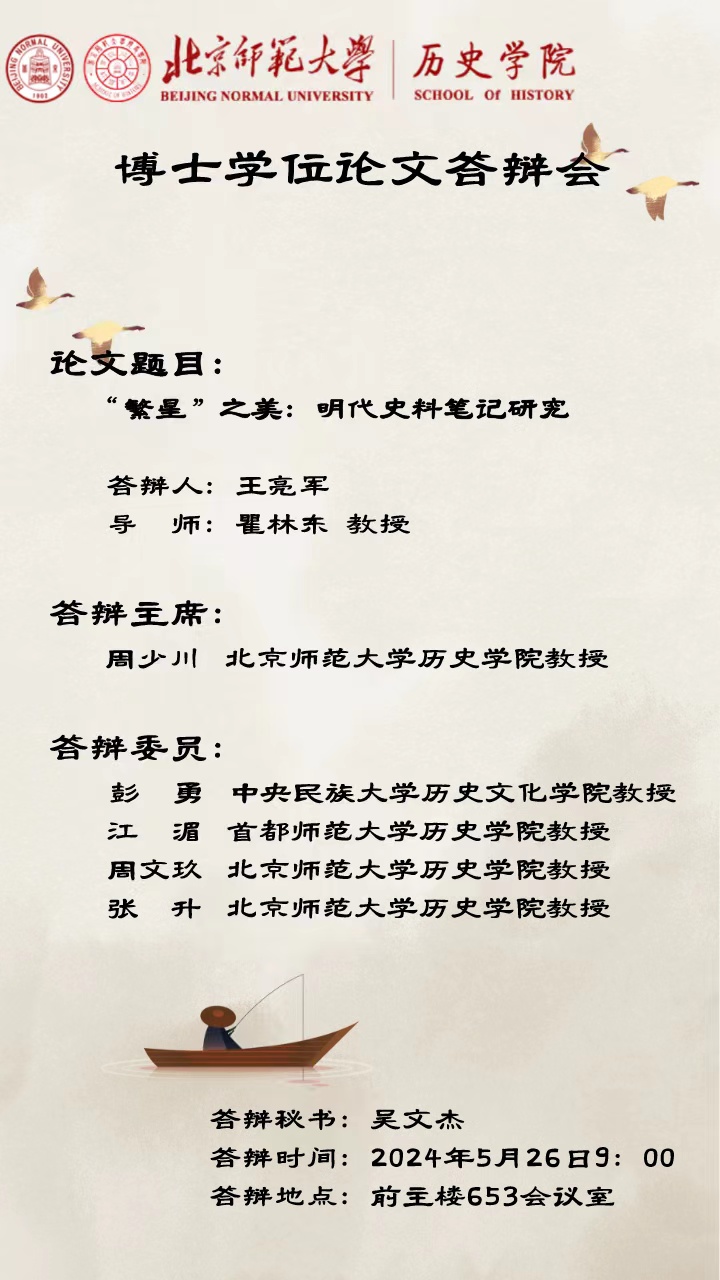 BEIJING NORMAL UNIVERSITY
1902
北京师范大学
BEIJING NORMAL UNIVERSITY
历史学院
SCHOOL Of HISTORY
博士学位论文答辩会
论文题目：
“繁星”之美：明代史料笔记研究
答辩人：王亮军
导 师：瞿林东 教授
答辩主席：
周少川 北京师范大学历史学院教授
答辩委员：
彭 勇 中央民族大学历史文化学院教授
江 湄 首都师范大学历史学院教授
周文玖 北京师范大学历史学院教授
张 升 北京师范大学历史学院教授
答辩秘书：吴文杰
答辩时间：2024年5月26日9：00
答辩地点：前主楼653会议室